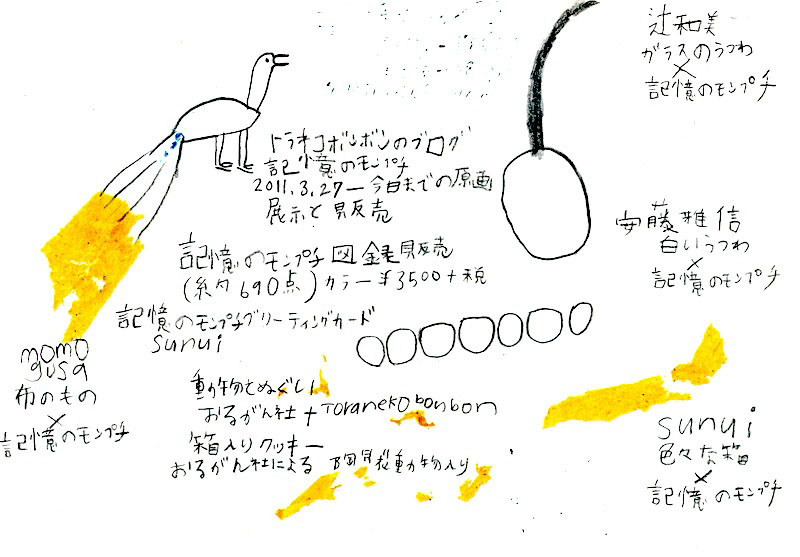 トラネコボンボンのブログ
記憶のモンプチ
2011.3.27—今日までの原画
展示と販売
記憶のモンプチ図録販売
(約690点)カラー¥3500+税
記憶のモンプチグリーティングカード
sunui
動物てぬぐい
おるがん社+Toranekobonbon
箱入りクッキー
おるがん社による陶器製動物入り
momo
gusa
布のもの
×
記憶のモンプチ
辻和美
ガラスのうつわ
×
記憶のモンプチ
安藤雅信
白いうつわ
×
記憶のモンプチ
sunui
色々な箱
×
記憶のモンプチ